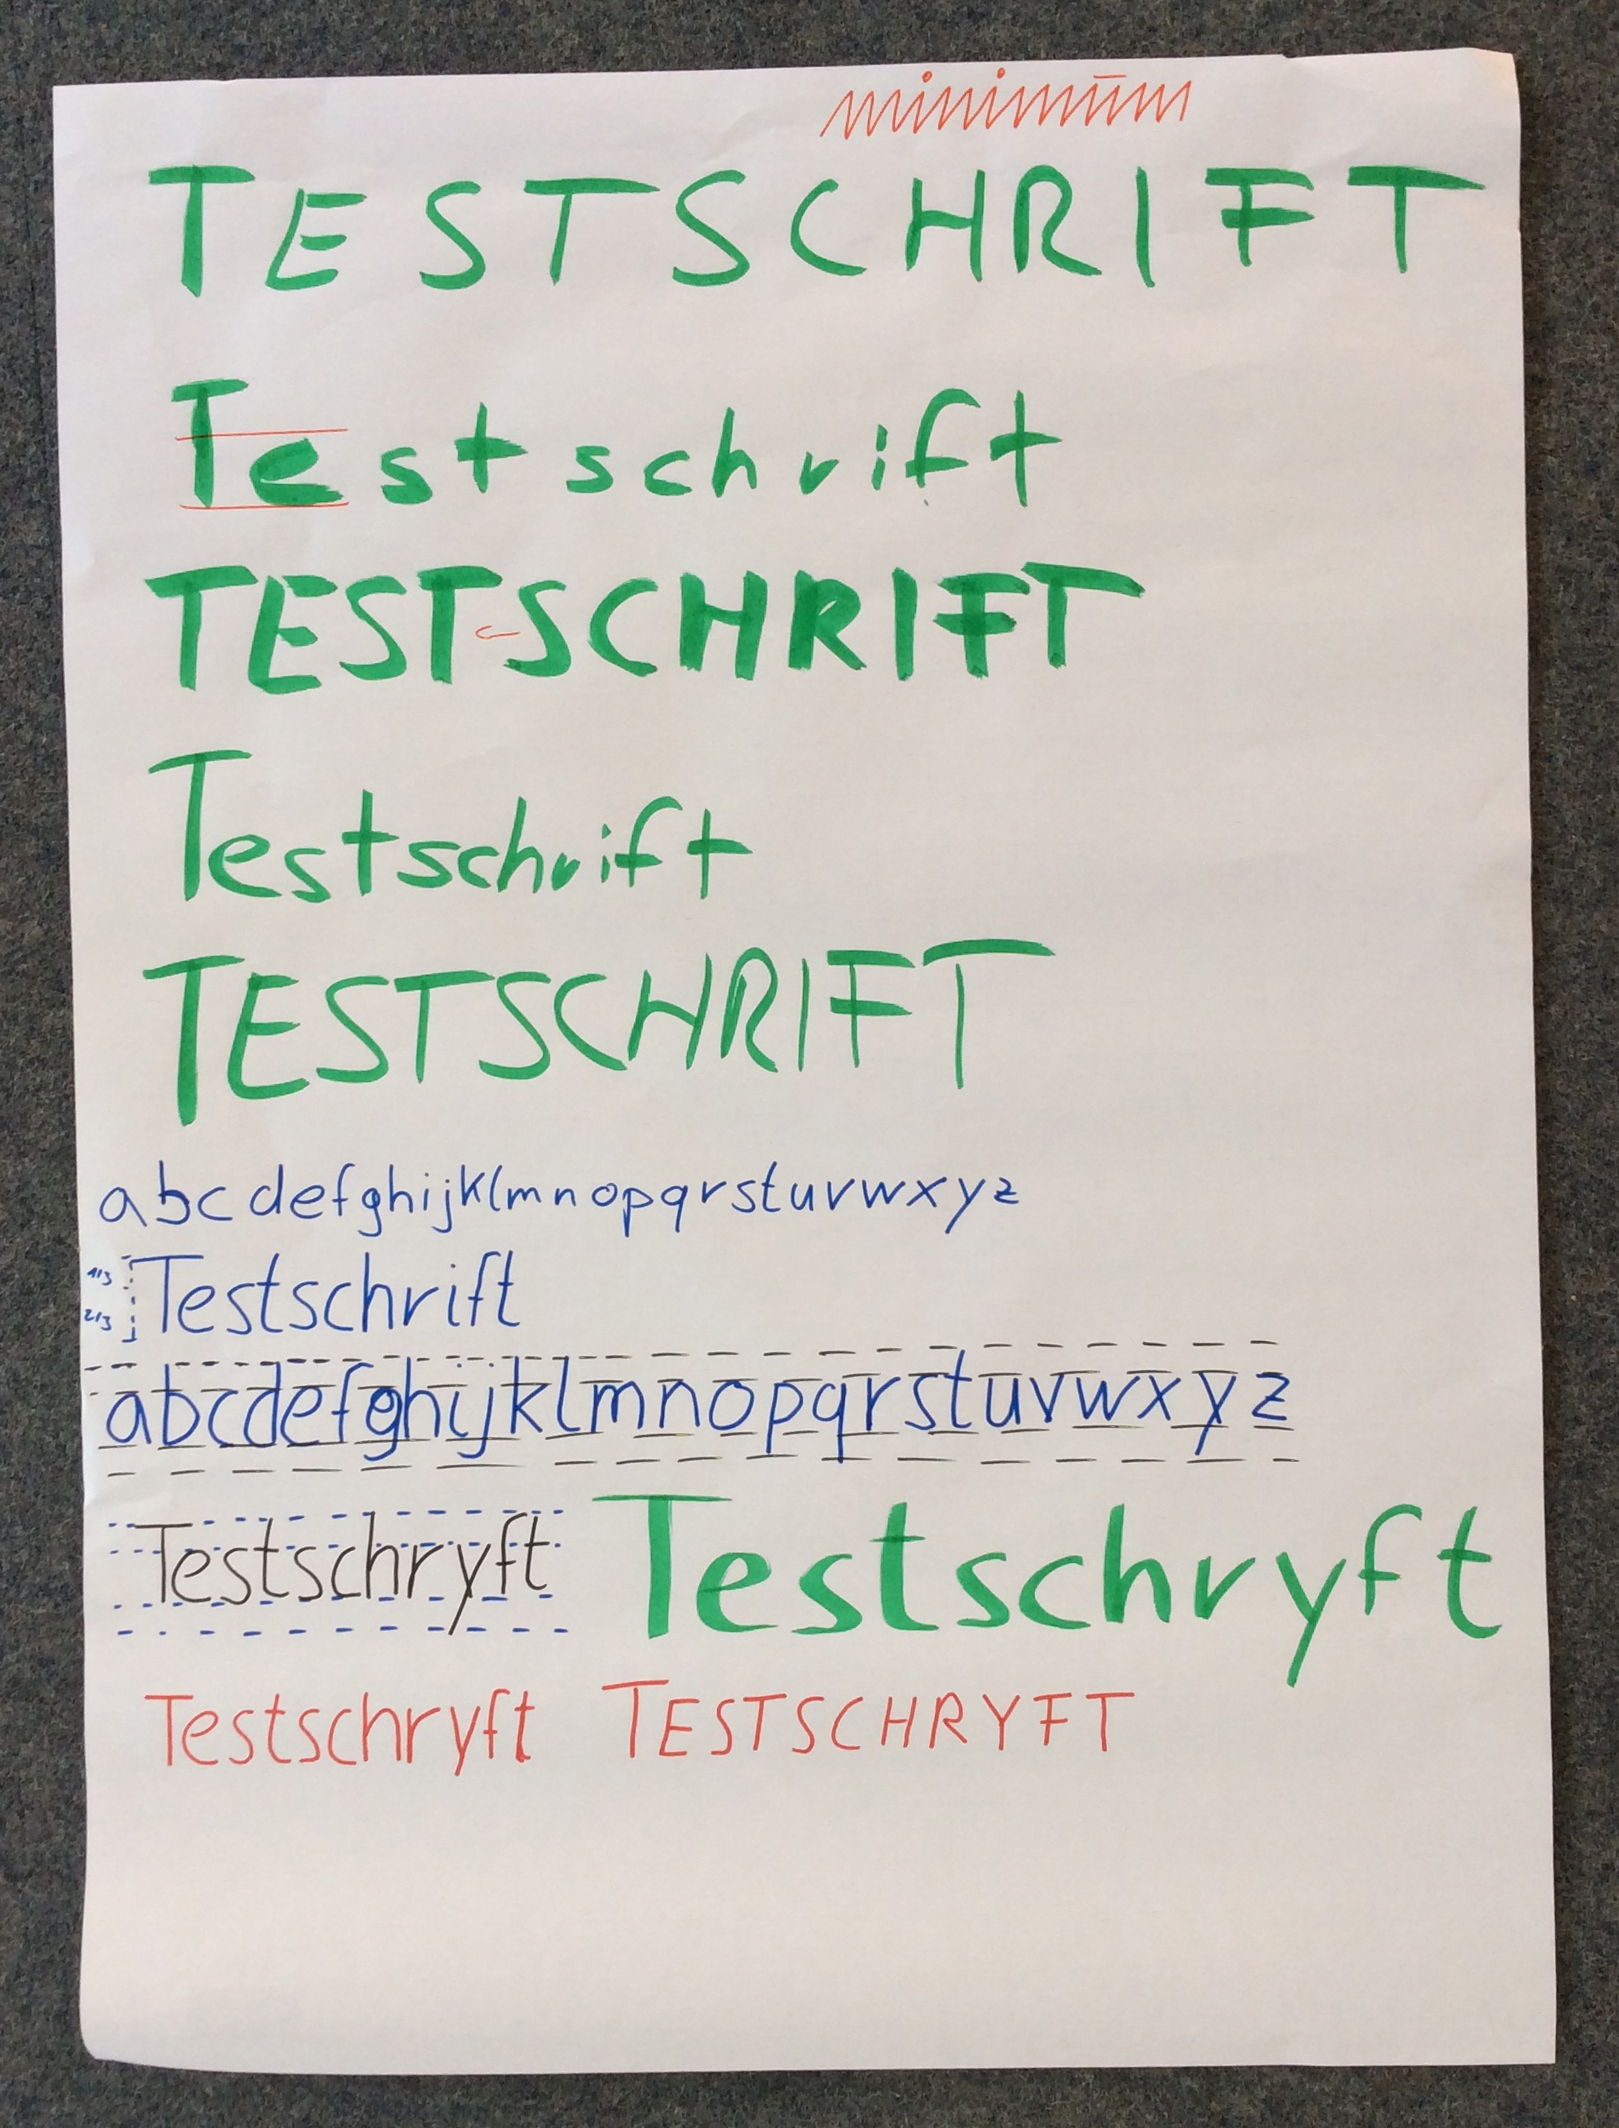 minimūm
TESTSCHRIFT
Testschrift
TESTSCHRIFT
Testschrift
TESTSCHRIFT
abcdefghijklmnopqrstuvwxyz
1/3
Testschrift
2/3
abcdefghijklmnopqrstuvwxyz
Testschryft Testschryft
Testschryft TESTSCHRYFT